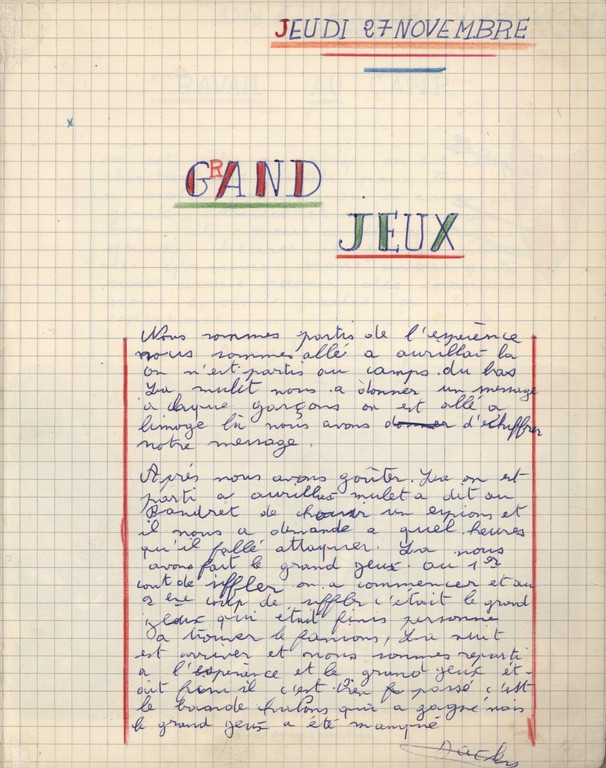 JEUDI 27 NOVEMBRE
GRAND
JEUX
Nous sommes partis de l'esperience
nous sommes allé a aurillac la
on n'est partis au camps du bas
La mulet nous a donner un message
a chaque garçons on est allé a
limoge là nous avons d'echiffrer
notre message.
Aprés nous avons goûter. La on est
parti a aurillac mulet a dit au
Bandret de un espions et
il nous a demande a quel heures
qu'il fallé attaquer. La nous
avons fait le grand jeux. au 1er
cout de siffler on a commencer et au
2 eme coup de siffler c'était le grand
jeux qui était finis personne
a trouver le fanions, La nuit
est arriver et nous sommes reparti
a l'esperience et le grand jeux ét-
ait finis il c'est bien passé c'est
la bande qui a gagné mais
le grand jeux a été manqué